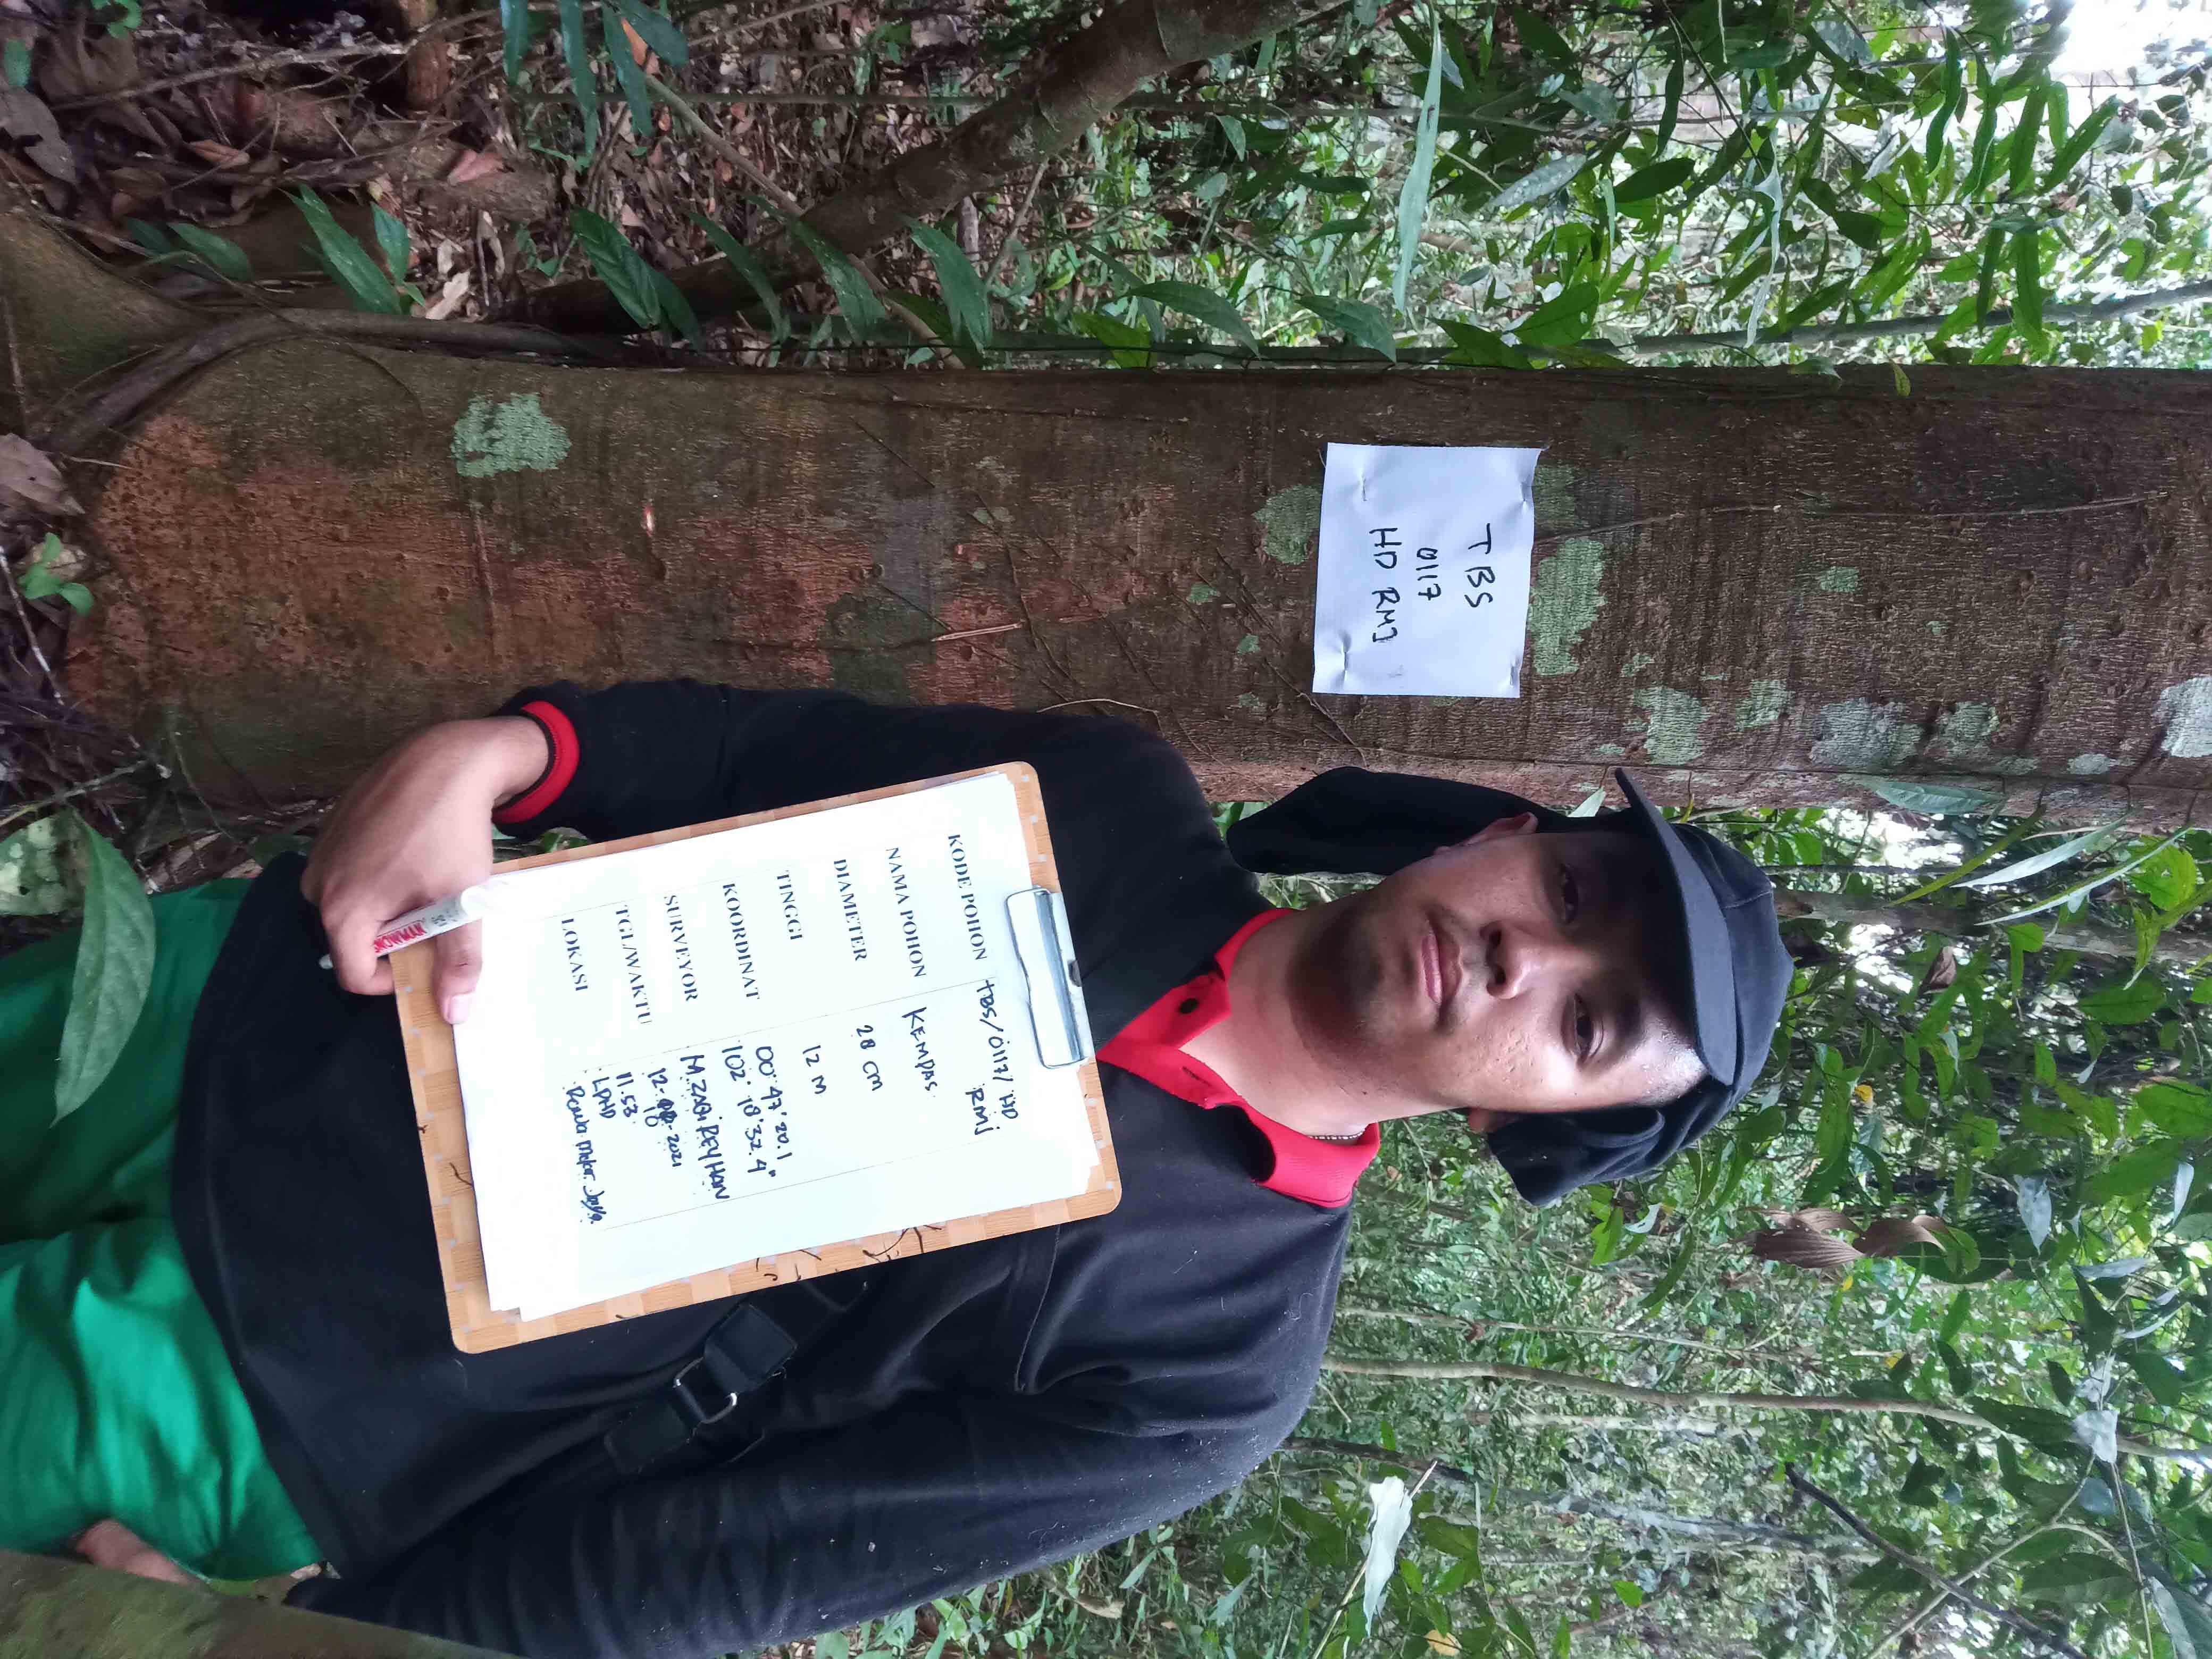 TBS
0117
HD RMJ
KODE POHON TBS/0117/HD
RMJ
NAMA POHON KEMPAS
DIAMETER 28 CM
TINGGI 12 M
KOORDINAT 00°.47'.20.1
102°.18'32.4"
SURVEYOR M. ZABI REYHAN
TGL/WAKTU 12- 2021
10
11.53
LOKASI LPHD
Rawa Mekar Jaya.
SNOWMAN